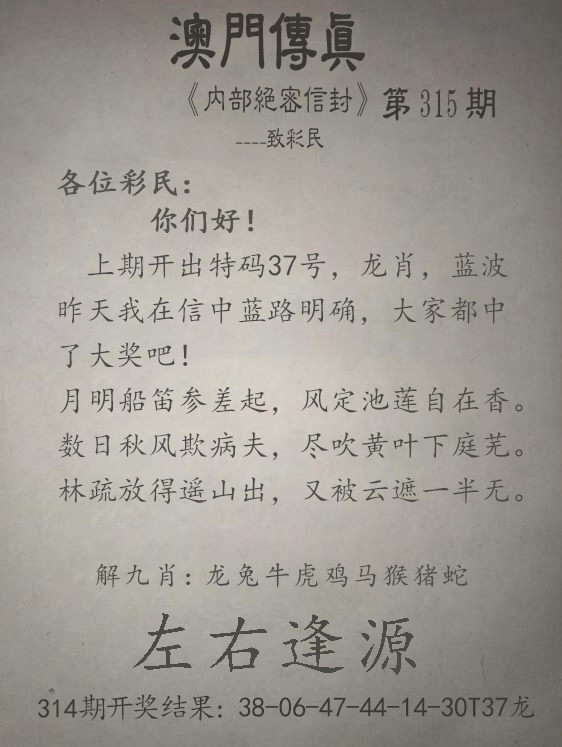 澳門傳真
《内部絕密信封》第315期
----致彩民
各位彩民:
你们好!
上期开出特码37号, 龙肖, 蓝波
昨天我在信中蓝路明确, 大家都中
了大奖吧!
月明船笛参差起, 风定池莲自在香。
数日秋风欺病夫, 尽吹黄叶下庭芜。
林疏放得遥山出, 又被云遮一半无。
解九肖: 龙兔牛虎鸡马猴猪蛇
左右逢源
314期开奖结果: 38-06-47-44-14-30T37龙